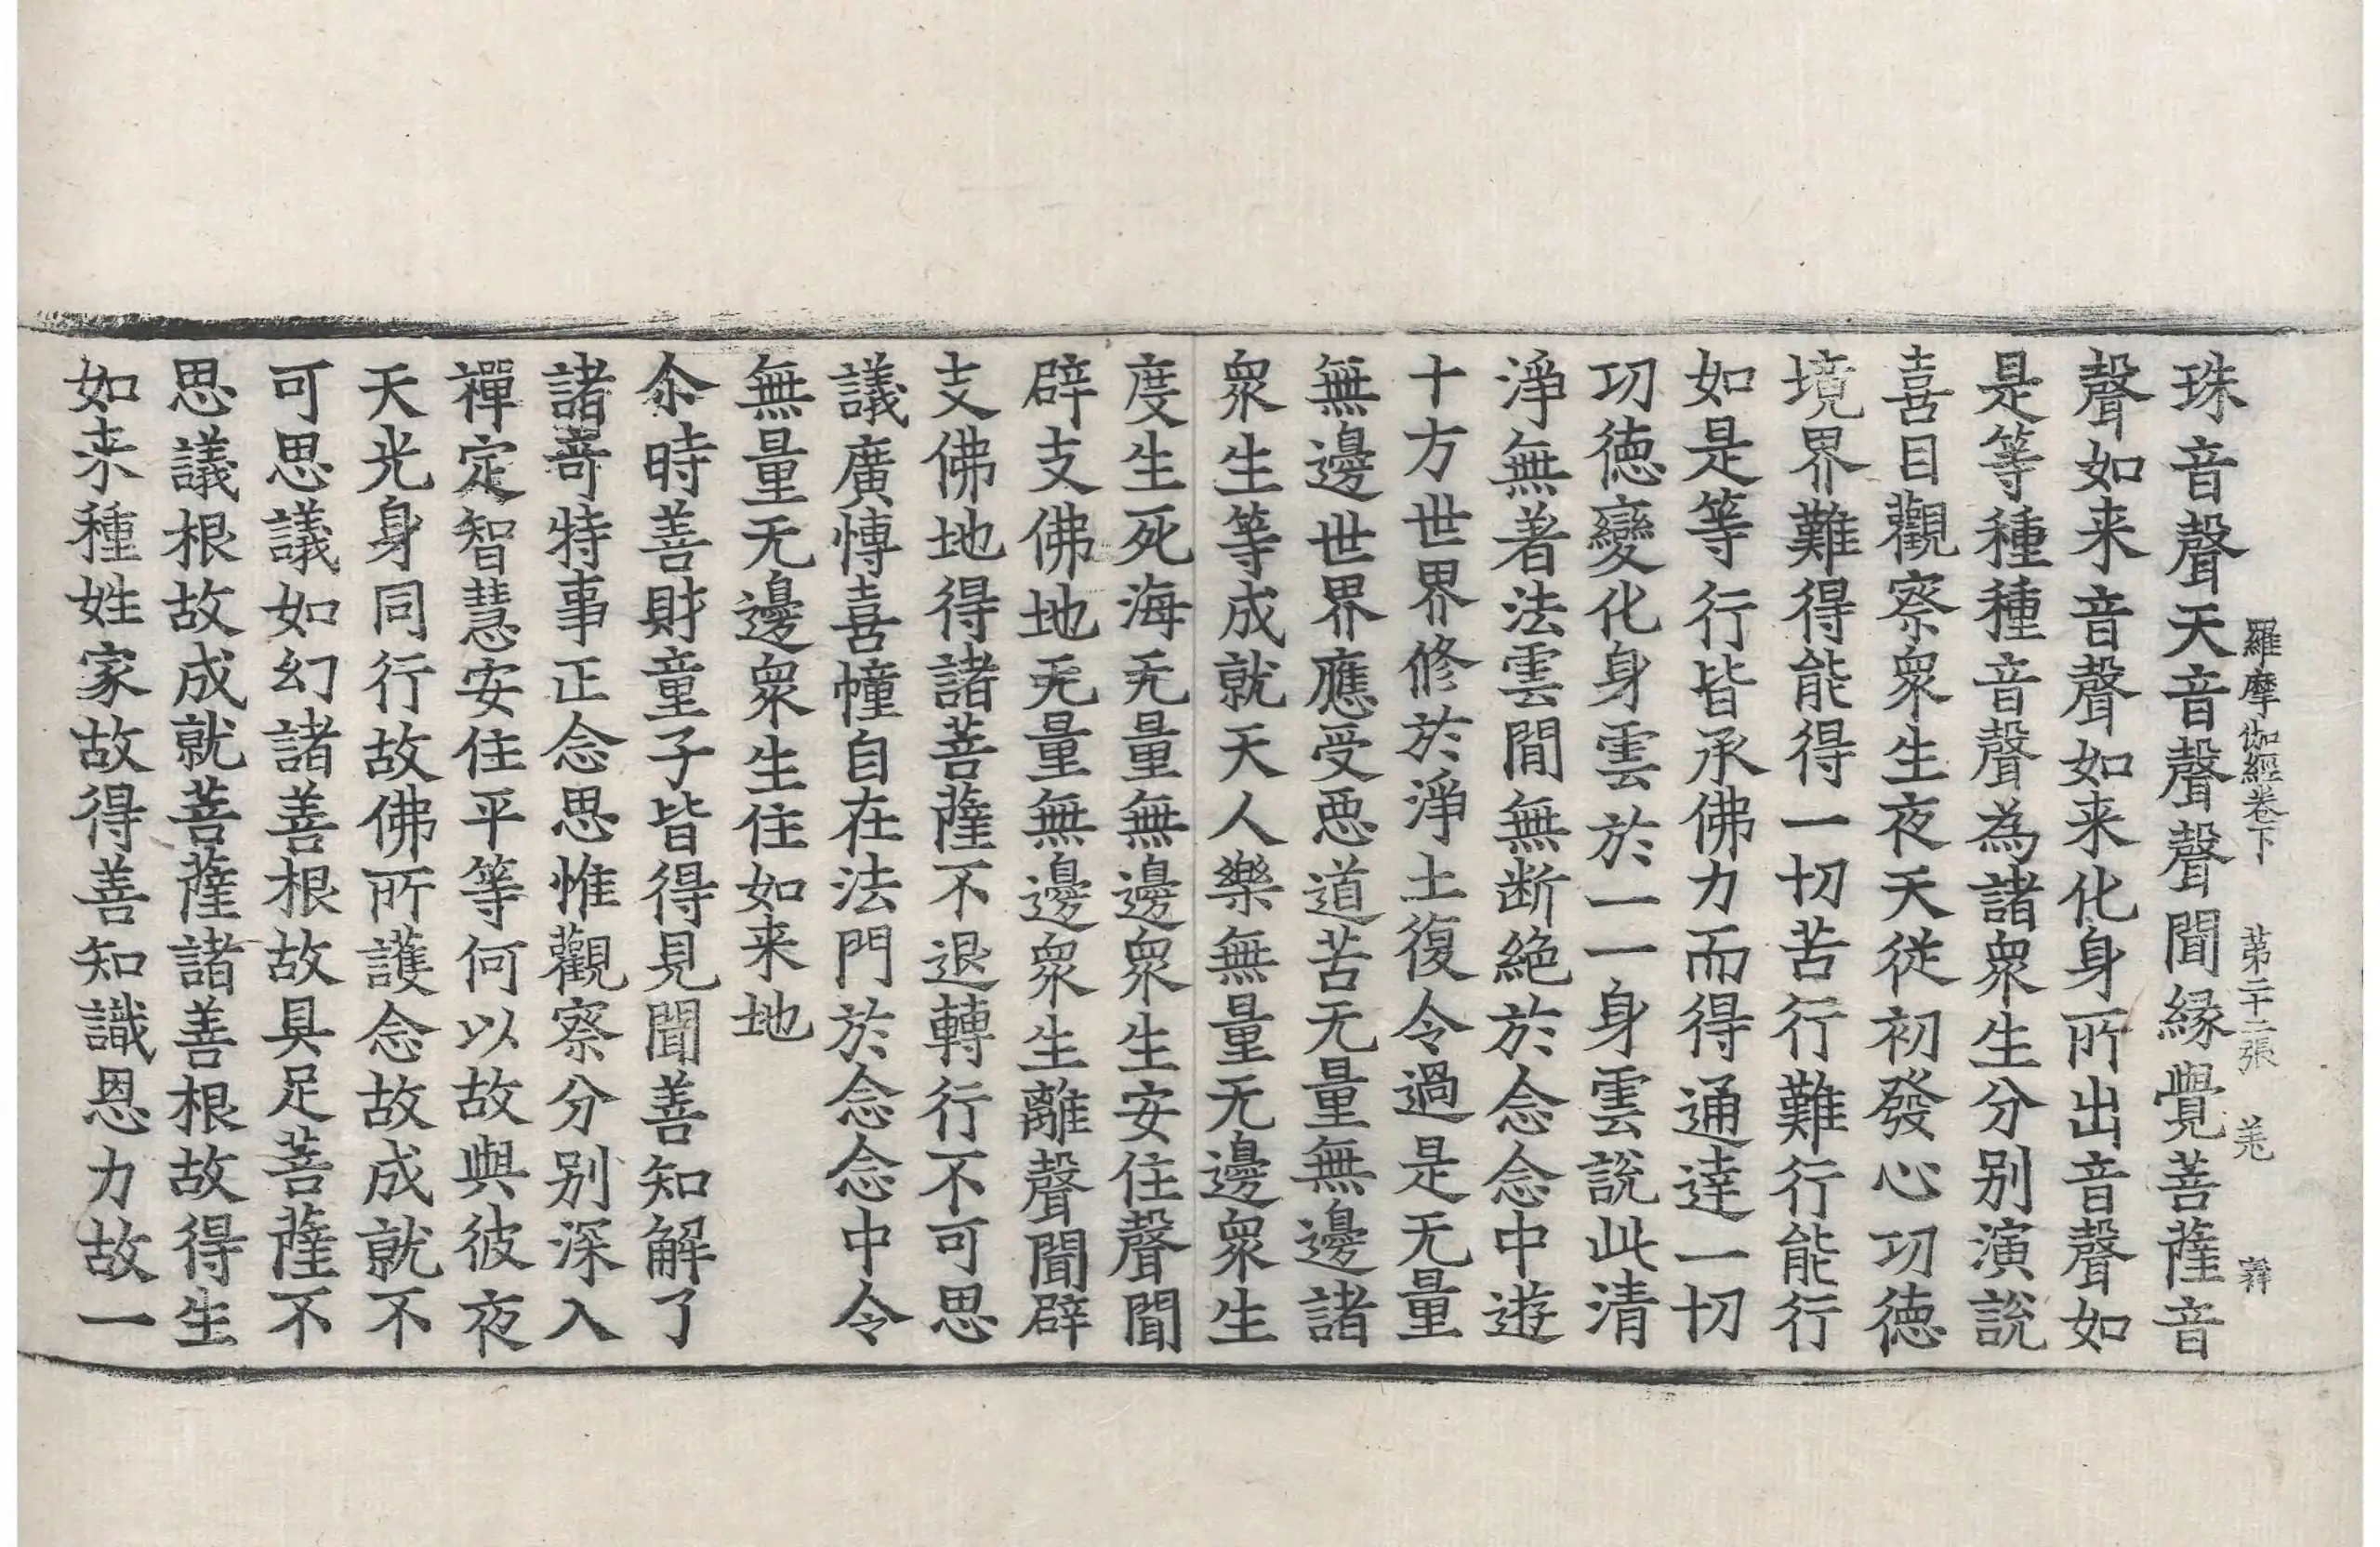 羅摩伽經卷下 苐二十二張 羌
珠音聲天音聲聲聞縁覺菩薩音
聲如来音聲如来化身所出音聲如
是等種種音聲為諸衆生分別演說
喜目觀察衆生夜天従初發心功徳
境界難得能得一切苦行難行能行
如是等行皆承佛力而得通達一切
功徳變化身雲於一一身雲説此清
淨無著法雲間無断絶於念念中遊
十方世界修於淨土復令過是无量
無邊世界應受惡道苦无量無邊諸
衆生等成就天人樂無量无邊衆生
度生死海无量無邊衆生安住聲聞
辟支佛地无量無邊衆生離聲聞辟
支佛地得諸菩薩不退轉行不可思
議廣愽喜幢自在法門於念念中令
無量无邊衆生住如来地
尒時善財童子皆得見聞善知解了
諸竒特事正念思惟觀察分別深入
禪定智慧安住平等何以故與彼夜
天光身同行故佛所護念故成就不
可思議如幻諸善根故具足菩薩不
思議根故成就菩薩諸善根故得生
如来種姓家故得善知識恩力故一